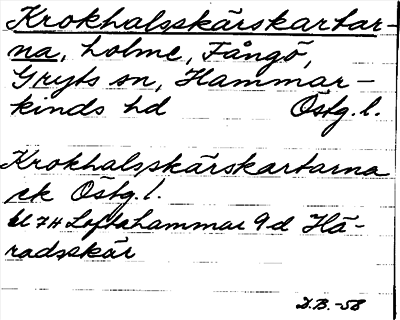 Krokhalsskärskartar-
na, holme, Fångö,
Gryts sn, Hammar-
kinds hd Östg. l.
Krokhalsskärskartarna
ek Östg. l.
bl 7H Loftahammar 9d Hä-
radsskär
D.B.-58